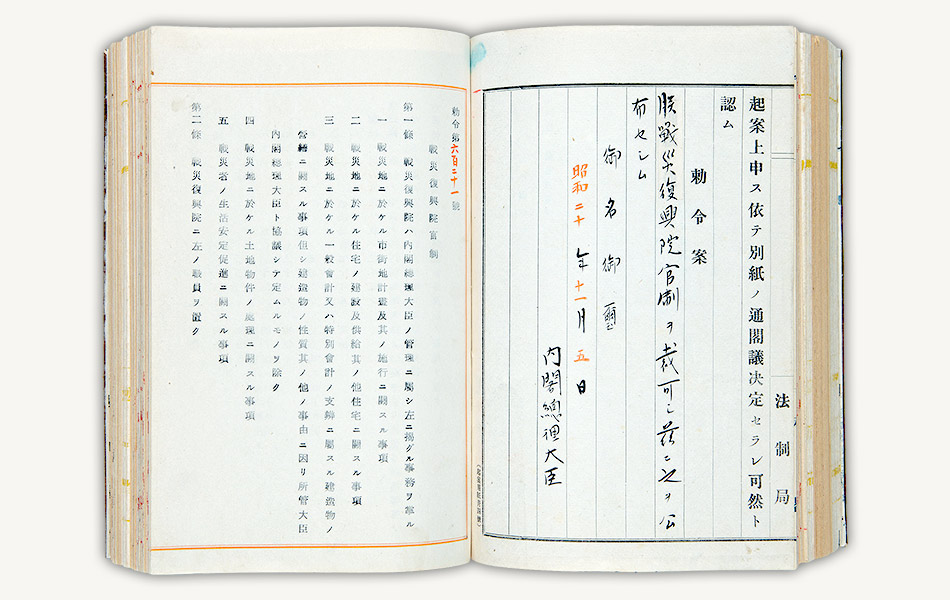 法制局
起案上申ス依テ別紙ノ通閣議決定セラレ可然ト
認ム
勅令案
朕戰災復興院官制ヲ裁可シ茲ニ之ヲ公
布セシム
御名御璽
昭和二十年十一月五日
内閣總理大臣
勅令第六百二十一號
戰災復興院官制
第一條 戰災復興院ハ内閣總理大臣ノ管理ニ屬シ左ニ揭グル事務ヲ掌ル
一 戰災地ニ於ケル市街地計畫及其ノ施行ニ關スル事項
二 戰災地ニ於ケル住宅ノ建設及供給其ノ他住宅ニ關スル事項
三 戰災地ニ於ケル一般會計又ハ特別會計ノ支辨ニ屬スル建造物ノ
營繕ニ關スル事項但シ建造物ノ性質其ノ他ノ事由ニ因リ所管大臣
内閣總理大臣ト協議シテ定ムルモノヲ除ク
四 戰災地ニ於ケル土地物件ノ處理ニ關スル事項
五 戰災者ノ生活安定促進ニ關スル事項
第二條 戰災復興院ニ左ノ職員ヲ置ク